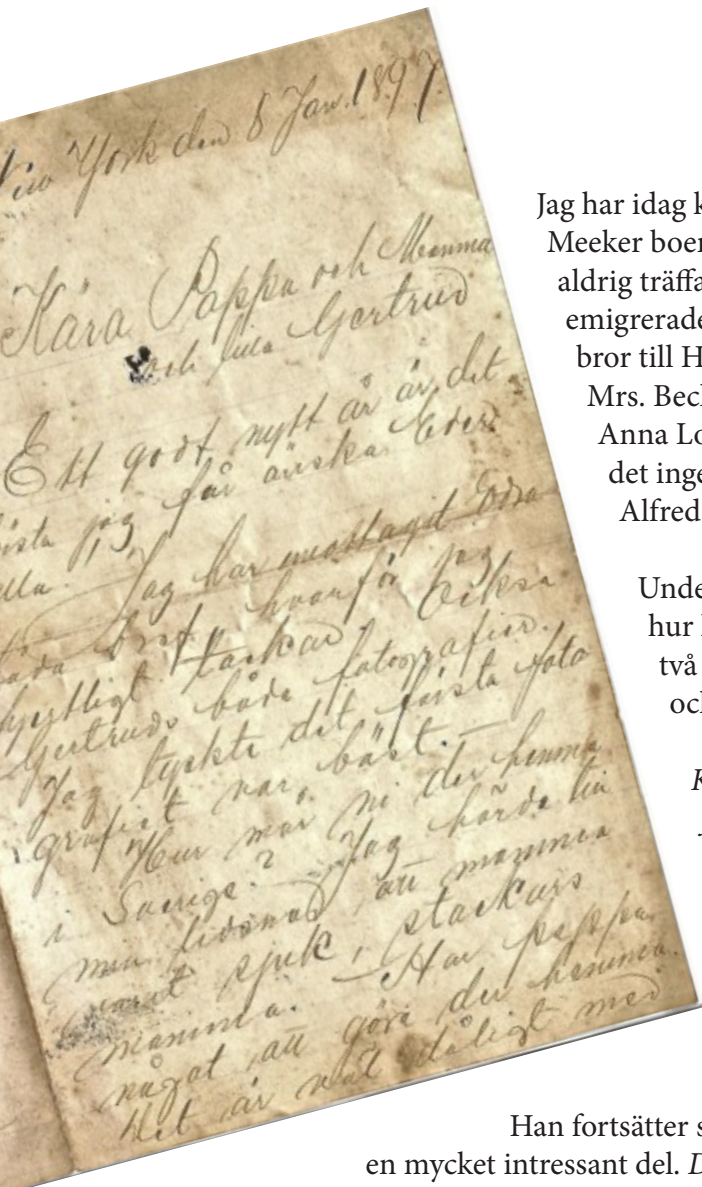 New York den 8 Jan. 1897.
Kära Pappa och Mamma
och lilla Gertrud
Ett godt nytt år är det
jag får önska Eder
alla. Jag har mottagit Edra
båda bref, hvarför jag
hjertligt tackar. Också
Gertruds båda fotografier.
Jag tyckte det första foto
grafiet var bäst. —
Hur mår ni der hemma
i Sverige? Jag hörde till
min att mamma
varit sjuk, stackars
mamma. — Har pappa
något att göra der hemma.
Det är väl dåligt med
Jag har idag k
Meeker boer
aldrig träffa
emigrerade
bror till H
Mrs. Beck
Anna Lo
det inge
Alfred
Unde
hur
två
och
K
Han fortsätter s
en mycket intressant del. D